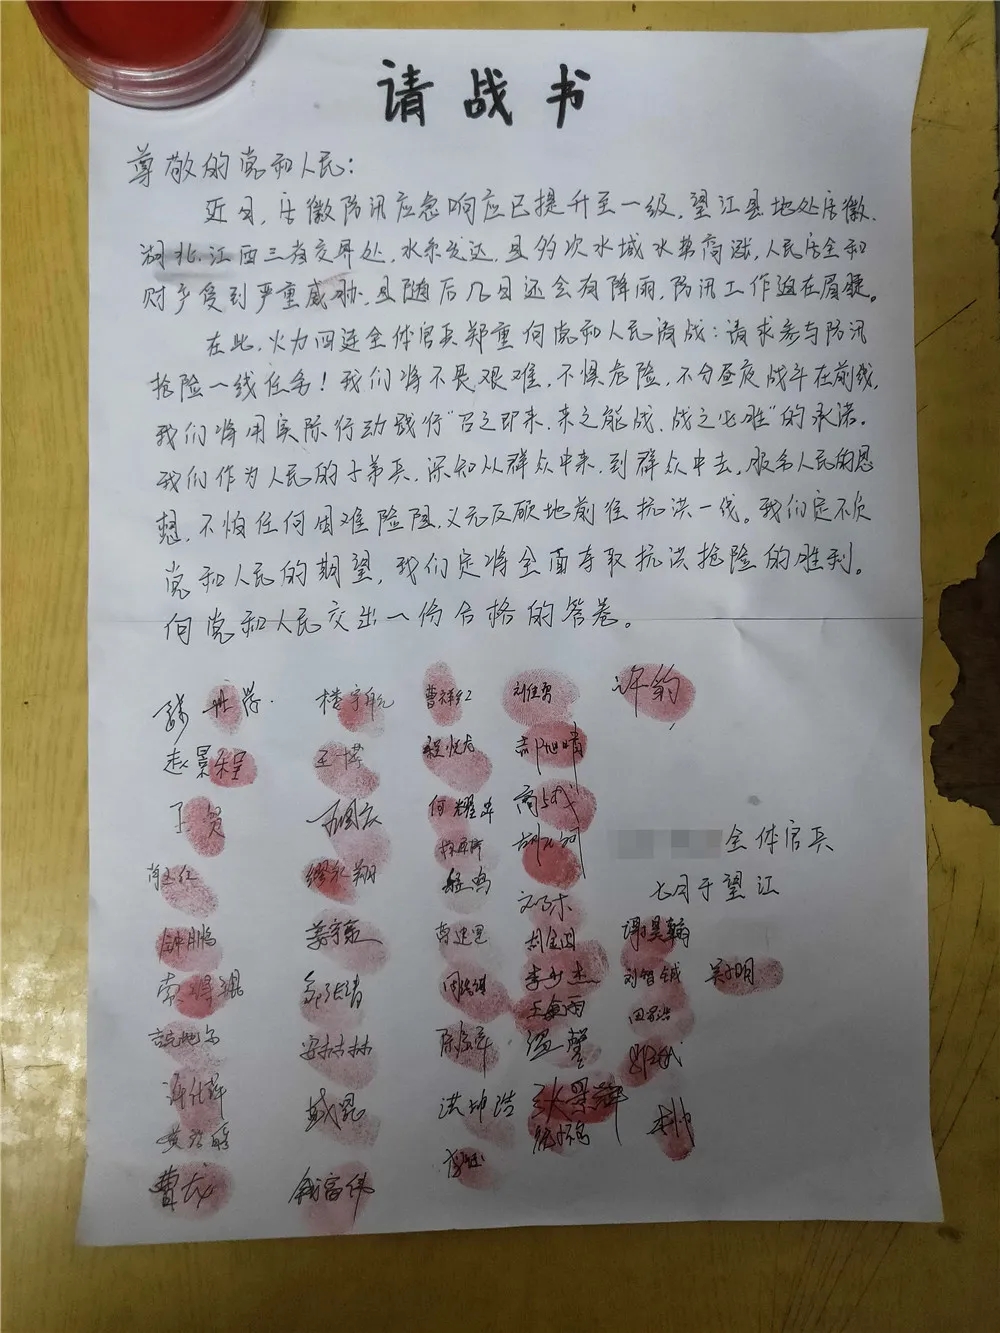 请战书
尊敬的党和人民：
近日，安徽防汛应急响应已提升至一级，望江县地处安徽、
湖北、江西三省交界处，水系发达，且多次水域水华高涨，人民安全和
财产受到严重威胁，且随后几日还会有降雨，防汛工作迫在眉睫。
在此，火力四连全体官兵郑重向党和人民请战：请求参与防汛
抢险一线任务！我们将不畏艰难，不惧危险，不分昼夜战斗在前线，
我们将用实际行动践行“召之即来、来之能战、战之必胜”的承诺。
我们作为人民的子弟兵，深知从群众中来，到群众中去，服务人民的思
想，不怕任何困难险阻，义无反顾地前往抗洪一线。我们定不负
党和人民的期望，我们定将全面夺取抗洪抢险的胜利。
向党和人民交出一份合格的答卷。
楼宇航 曹祥红 刘佳勇 许豹
赵景程 王博 程悦龙 胡旭晴
王贺 何耀华 商战
全体官兵
肖玉红 缪永翔
七月于望江
钟鹏 姜宇鑫 胡金国 谭昊翰
李少杰 刘智铖 吴子明
吉克地尔 安林林 王复雨 田景浩
温馨
盛昆 洪坤浩 张景萍
曹龙 钱富伟